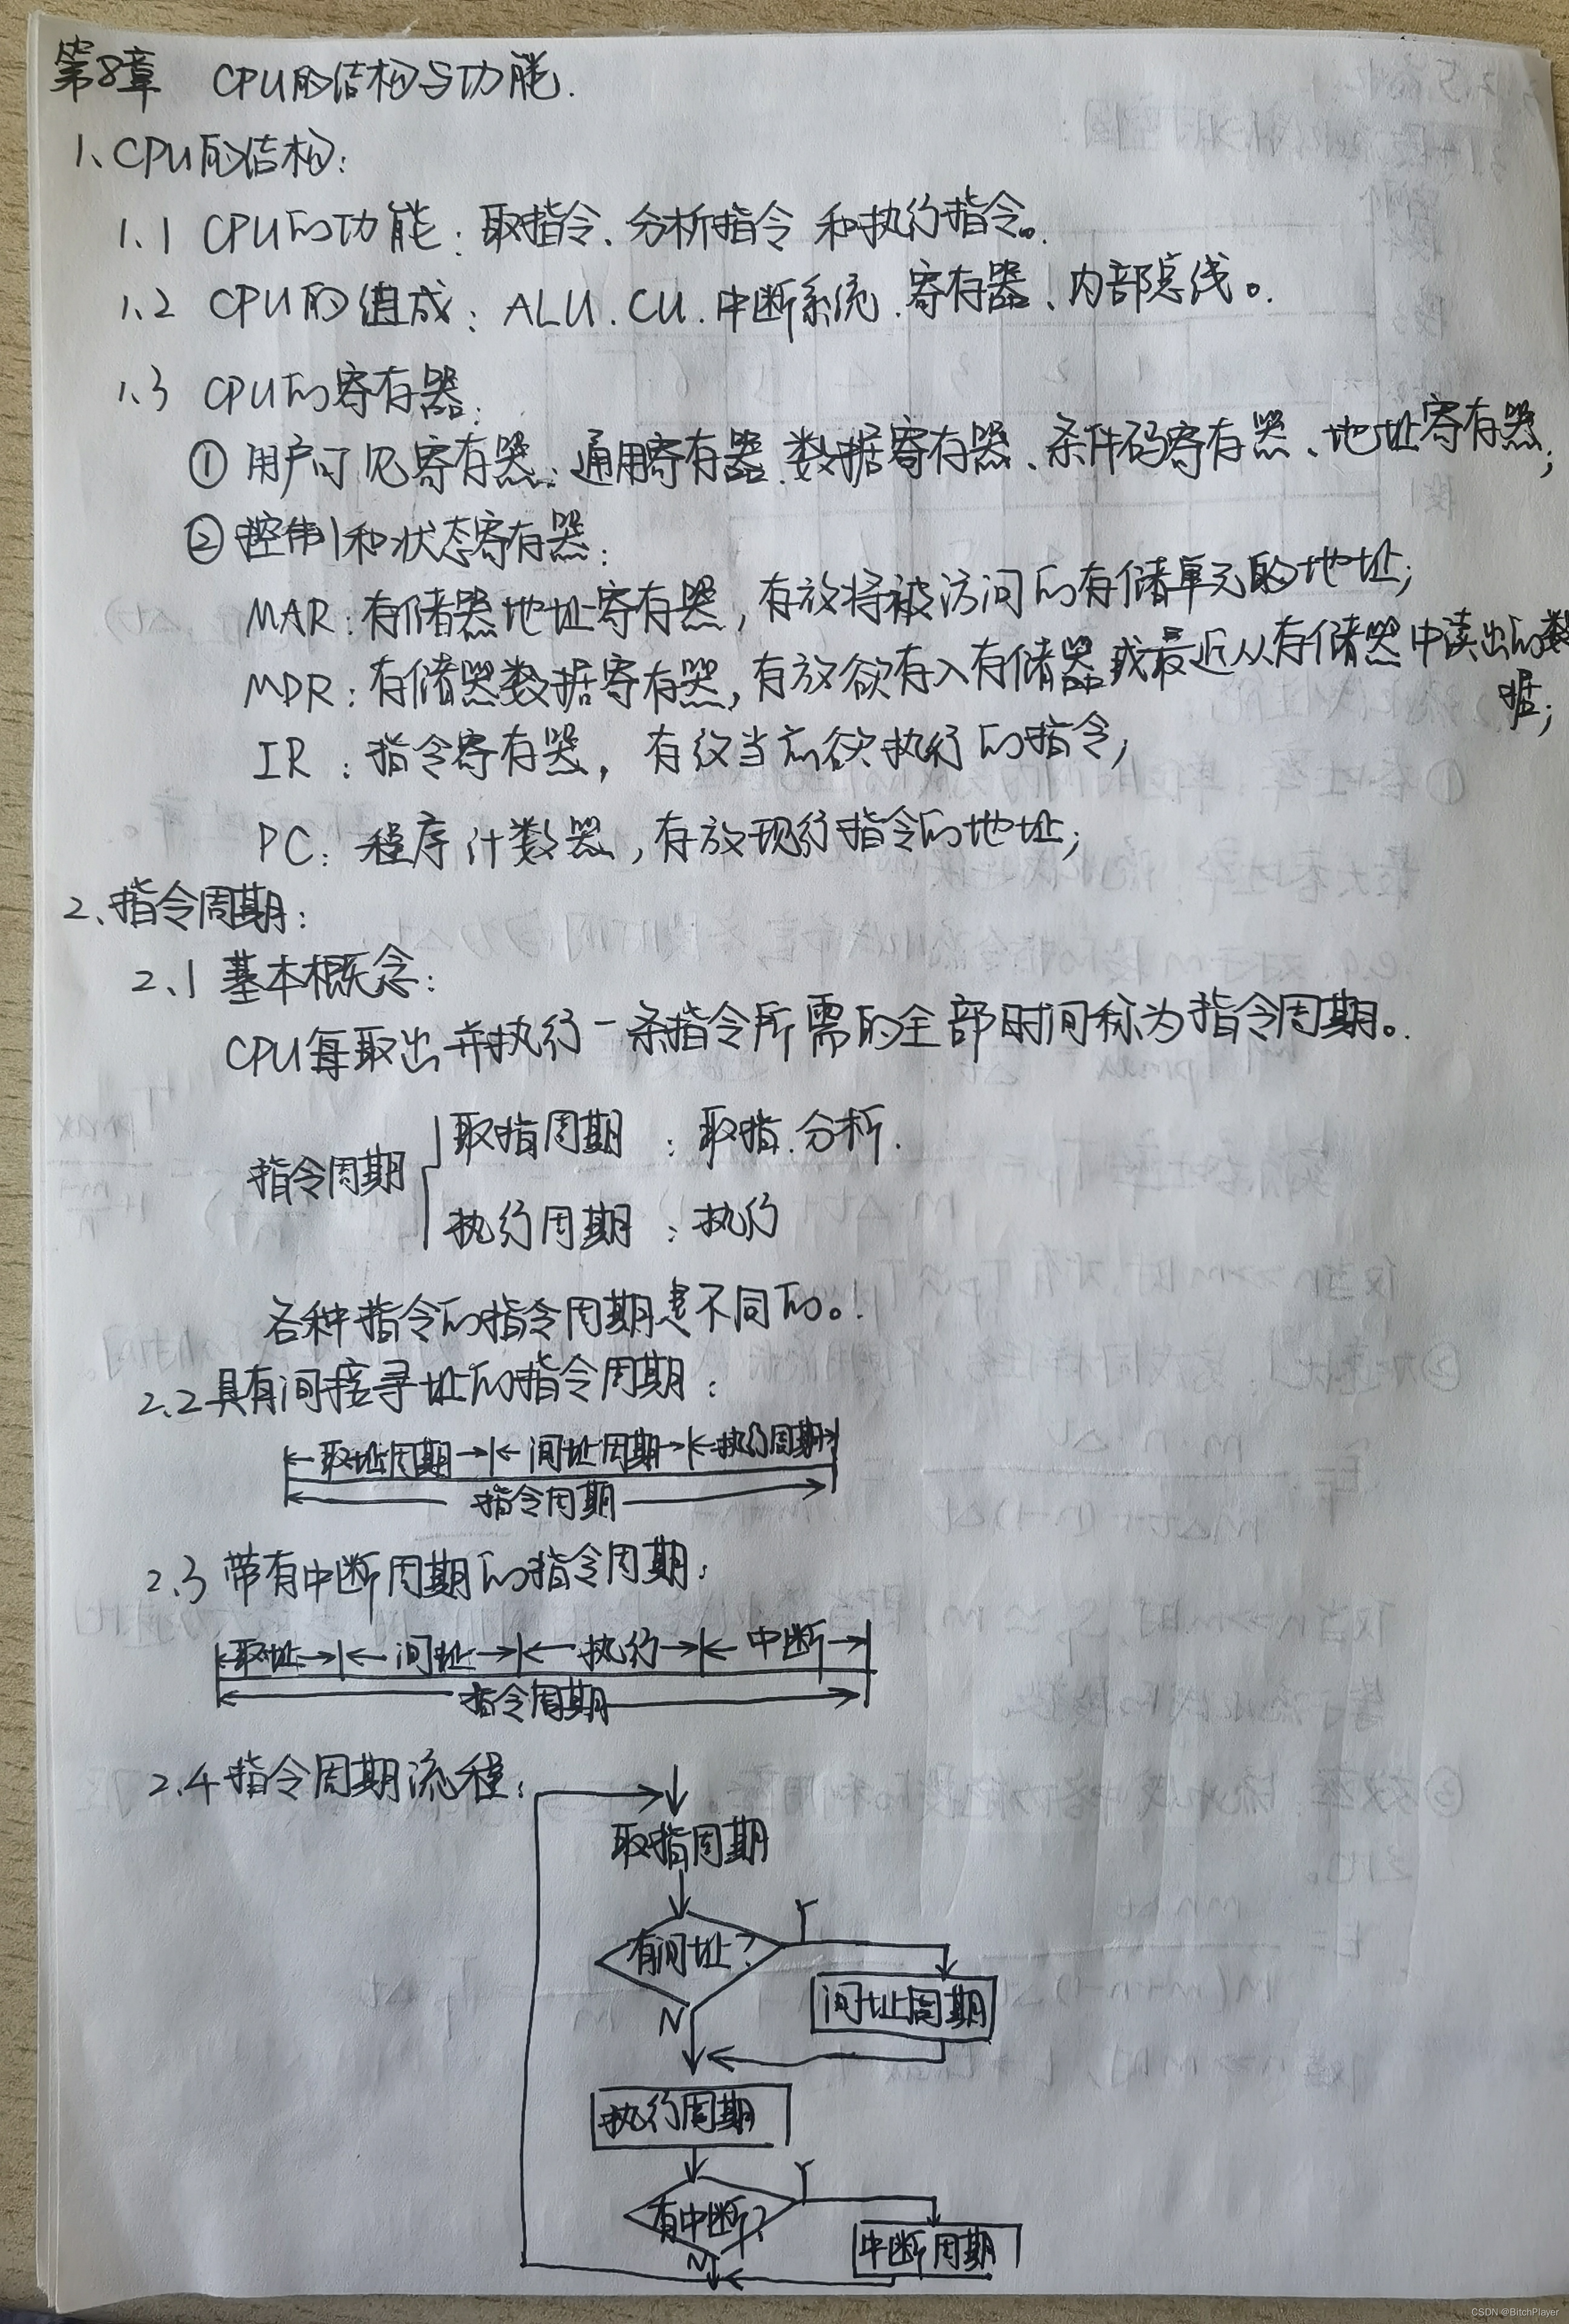 第8章 CPU的结构与功能.
1、CPU的结构:
1.1 CPU的功能:取指令、分析指令 和执行指令。
1.2 CPU的组成:ALU、CU、中断系统、寄存器、内部总线。
1.3 CPU的寄存器:
① 用户可见寄存器:通用寄存器、数据寄存器、条件码寄存器、地址寄存器;
② 控制和状态寄存器:
MAR:存储器地址寄存器,存放将被访问的存储单元的地址;
MDR:存储器数据寄存器,存放欲存入存储器或最近从存储器中读出的数
据;
IR:指令寄存器,存放当前欲执行的指令;
PC:程序计数器,存放现行指令的地址;
2、指令周期:
2.1 基本概念:
CPU每取出并执行一条指令所需的全部时间称为指令周期。
取指周期:取指、分析.
指令周期
执行周期:执行
各种指令的指令周期是不同的。!
2.2 具有间接寻址的指令周期:
取址周期 间址周期 执行周期
指令周期
2.3 带有中断周期的指令周期:
取址 间址 执行 中断
指令周期
2.4 指令周期流程:
取指周期
有间址? Y
间址周期
N
执行周期
有中断? Y
中断周期
N
CSDN @BitchPlayer